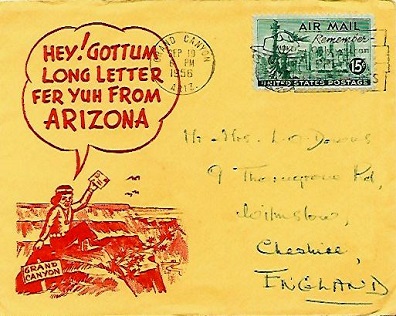 HEY! GOTTUM
LONG LETTER
FER YUH FROM
ARIZONA
GRAND CANYON
SEP 10
6 PM
1956
ARIZ.
AIR MAIL
Remember
15¢
UNITED STATES POSTAGE
Mr Mrs
9 Rd,
Wilmslow,
Cheshire,
ENGLAND
GRAND
CANYON